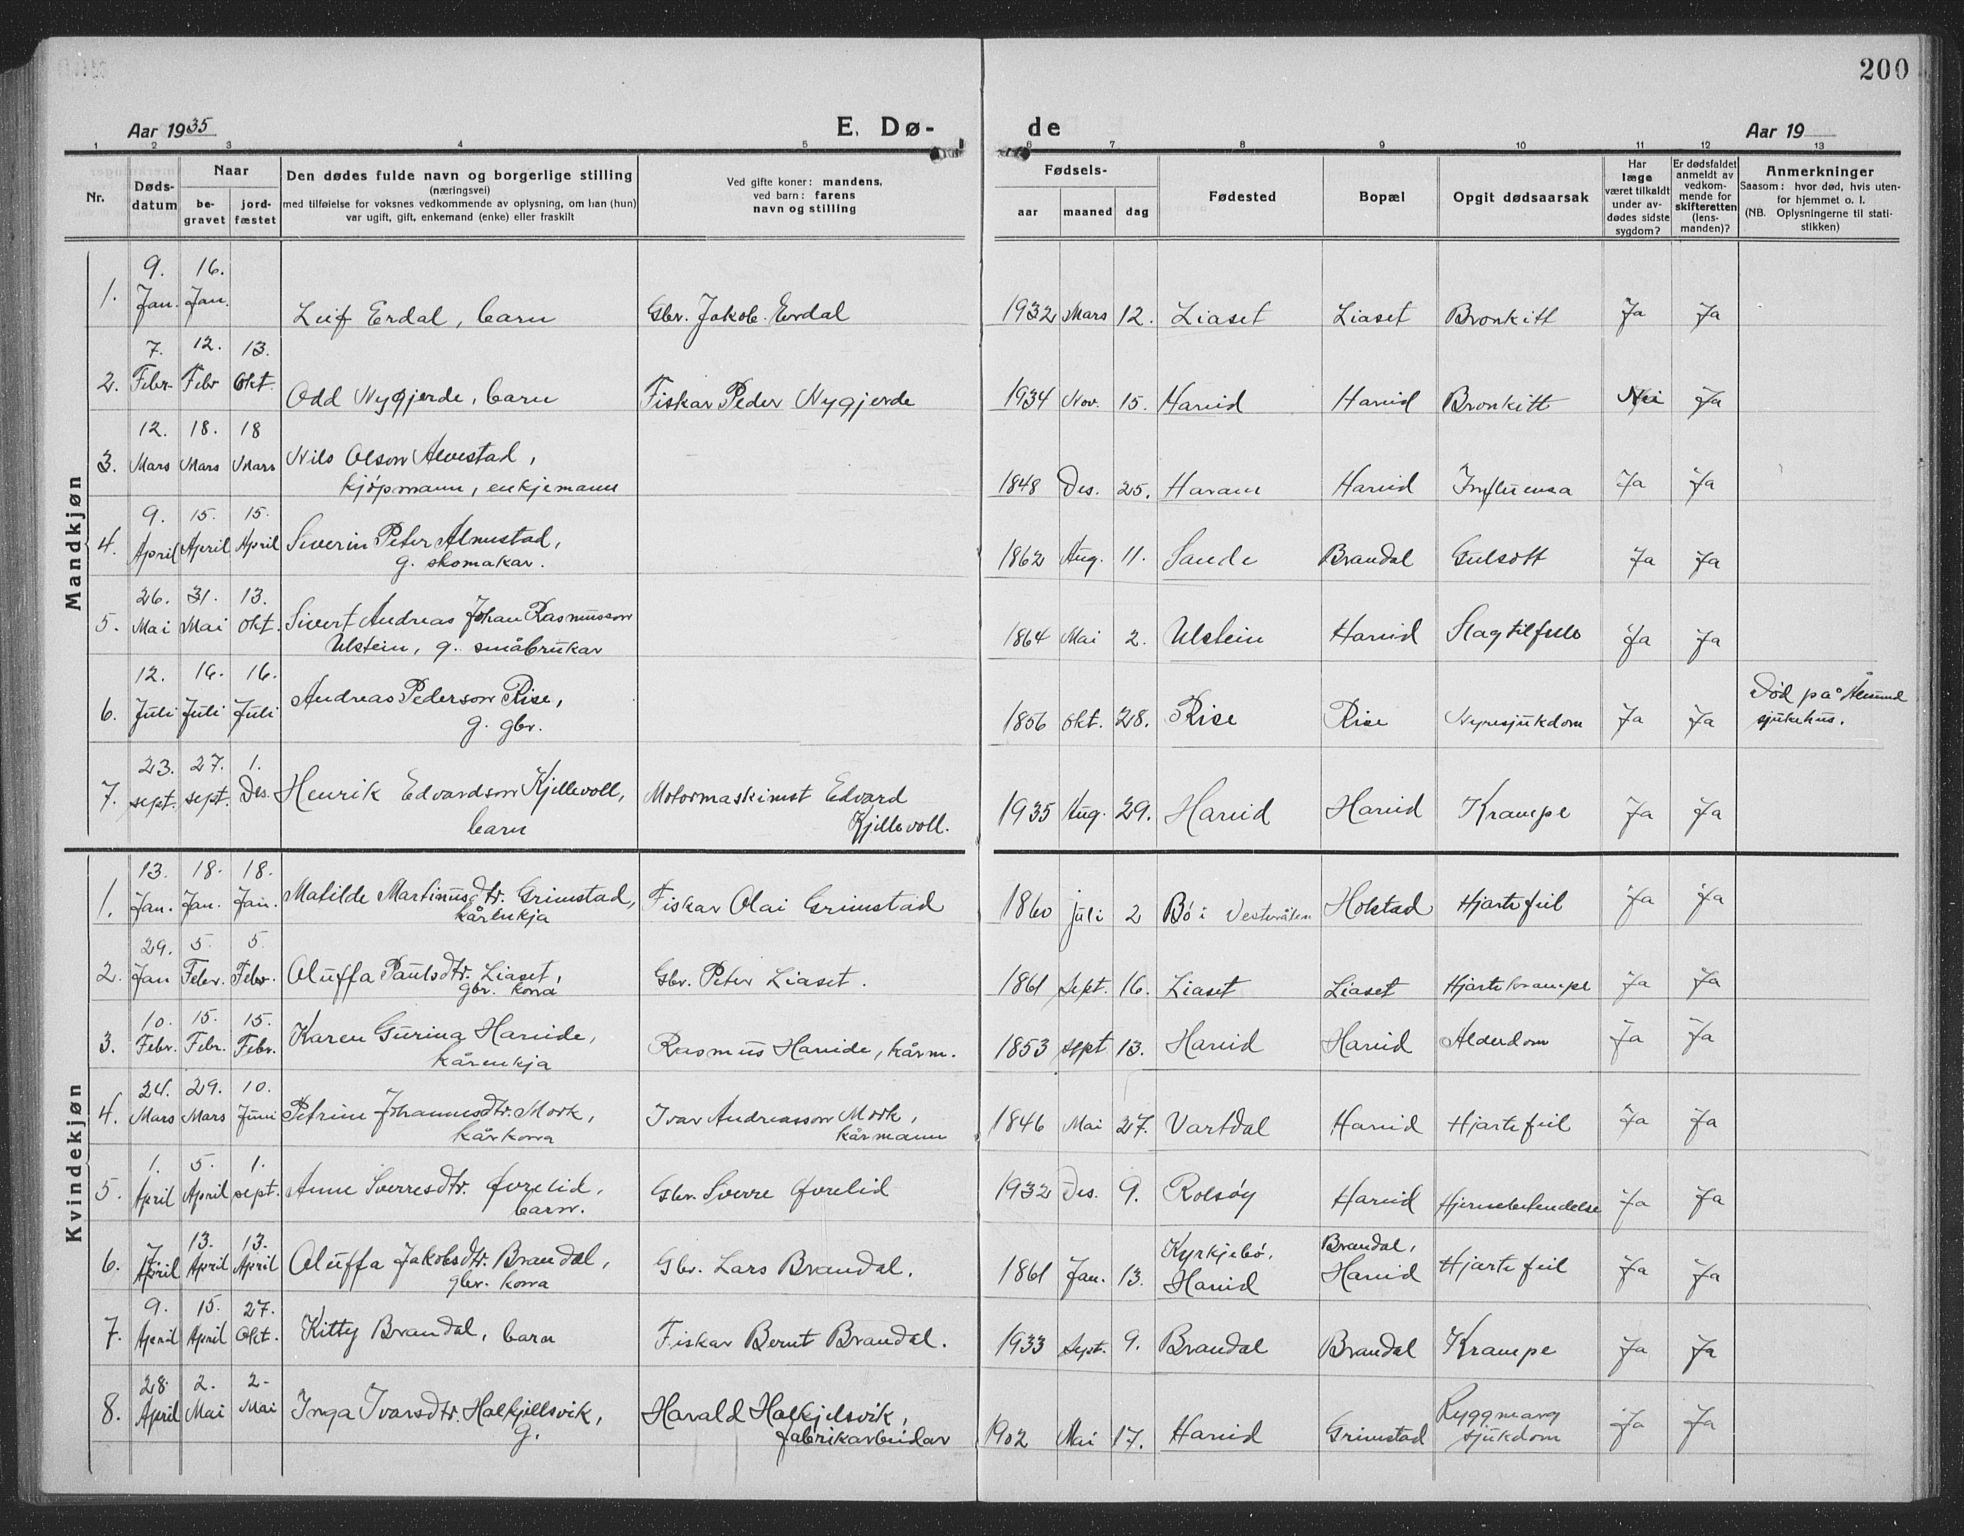 200
Aar 1935
E. Dø-
de
Aar 19
1 2 3 4 5 6 7 8 9 10 11 12 13
Nr.
Døds-
datum
Naar
be-
gravet
jord-
fæstet
Den dødes fulde navn og borgerlige stilling
(næringsvei)
med tilføielse for voksnes vedkommende av oplysning, om han (hun)
var ugift, gift, enkemand (enke) eller fraskilt
Ved gifte koner: mandens,
ved barn: farens
navn og stilling
Fødsels-
aar maaned dag
Fødested
Bopæl
Opgit dødsaarsak
Har
læge
været tilkaldt
under av-
dødes sidste
sygdom?
Er dødsfaldet
anmeldt av
vedkom-
mende for
skifteretten
(lens-
manden)?
Anmerkninger
Saasom: hvor død, hvis uten-
for hjemmet o. l.
(NB. Oplysningerne til stati-
stikken)
Mandkjøn
9. 16.
1. Jan. Jan. Leif Erdal, barn Gbr. Jakob Erdal 1932 Mars 12. Liaset Liaset Bronkitt Ja Ja
7. 12. 13.
2. Febr. Febr Okt. Odd Nygjerde, barn Fiskar Peder Nygjerde 1934 Nov. 15. Hareid Hareid Bronkitt Nei Ja
12. 18. 18
3. Mars Mars Mars Nils Olson Alvestad,
kjøpmann, enkjemann 1848 Des. 25. Haram Hareid Influensa Ja Ja
9. 15. 15.
4. April April April Severin Peter Almestad,
g. skomakar. 1862 Aug. 11. Sande Brandal Gulsott Ja Ja
26. 31. 13.
5. Mai Mai Okt. Sivert Andreas Johan Rasmusson
Ulstein, g. småbrukar 1864 Mai 2. Ulstein Hareid Slagtilfelle Ja Ja
12. 16. 16.
6. Juli Juli Juli Andreas Pederson Rise,
g. gbr. 1856 Okt. 28. Rise Rise Nyresjukdom Ja Ja Død på Ålesund
sjukehus.
23. 27. 1.
7. sept. sept. Des. Henrik Edvardson Kjellevoll,
barn Motormaskinist Edvard
Kjellevoll. 1935 Aug. 29. Hareid Hareid Krampe Ja Ja
Kvindekjøn
13. 18. 18.
1. Jan. Jan. Jan. Matilde Martinusdtr. Grimstad,
kårenkja Fiskar Olai Grimstad 1860 juli 2 Bø i Vesterålen Holstad Hjartefeil Ja Ja
29. 5. 5.
2. Jan Febr. Febr. Oluffa Paulsdtr. Liaset,
gbr. kona Gbr. Peter Liaset. 1861 Sept. 16. Liaset Liaset Hjartekrampe Ja Ja
10. 15. 15.
3. Febr. Febr. Febr. Karen Gurina Hareide,
kårenkja Rasmus Hareide, kårm. 1853 sept 13. Hareid Hareid Alderdom Ja Ja
24. 29. 10.
4. Mars Mars Juni Petrine Johannesdtr. Mork,
kårkona Ivar Andreasson Mork,
kårmann 1846 Mai 27. Vartdal Hareid Hjartefeil Ja Ja
1. 5. 1.
5. April April sept. Anne Sverresdtr. Øvrelid,
barn. Gbr. Sverre Øvrelid 1932 Des. 9. Rolsøy Hareid Hjernebetendelse Ja Ja
7. 13. 13.
6. April April April Oluffa Jakobsdtr. Brandal,
gbr. kona Gbr. Lars Brandal. 1861 Jan. 13. Kyrkjebø,
Hareid Brandal,
Hareid Hjartefeil Ja Ja
9. 15. 27.
7. April April Okt. Kitty Brandal, barn Fiskar Bernt Brandal. 1933 Sept. 9. Brandal Brandal Krampe Ja Ja
28 2. 2-
8. April Mai Mai Inga Ivarsdtr. Halkjellsvik,
g. Harald Halkjelsvik,
fabrikarbeidar 1902 Mai 17. Hareid Grimstad Ryggmarg
sjukdom Ja Ja